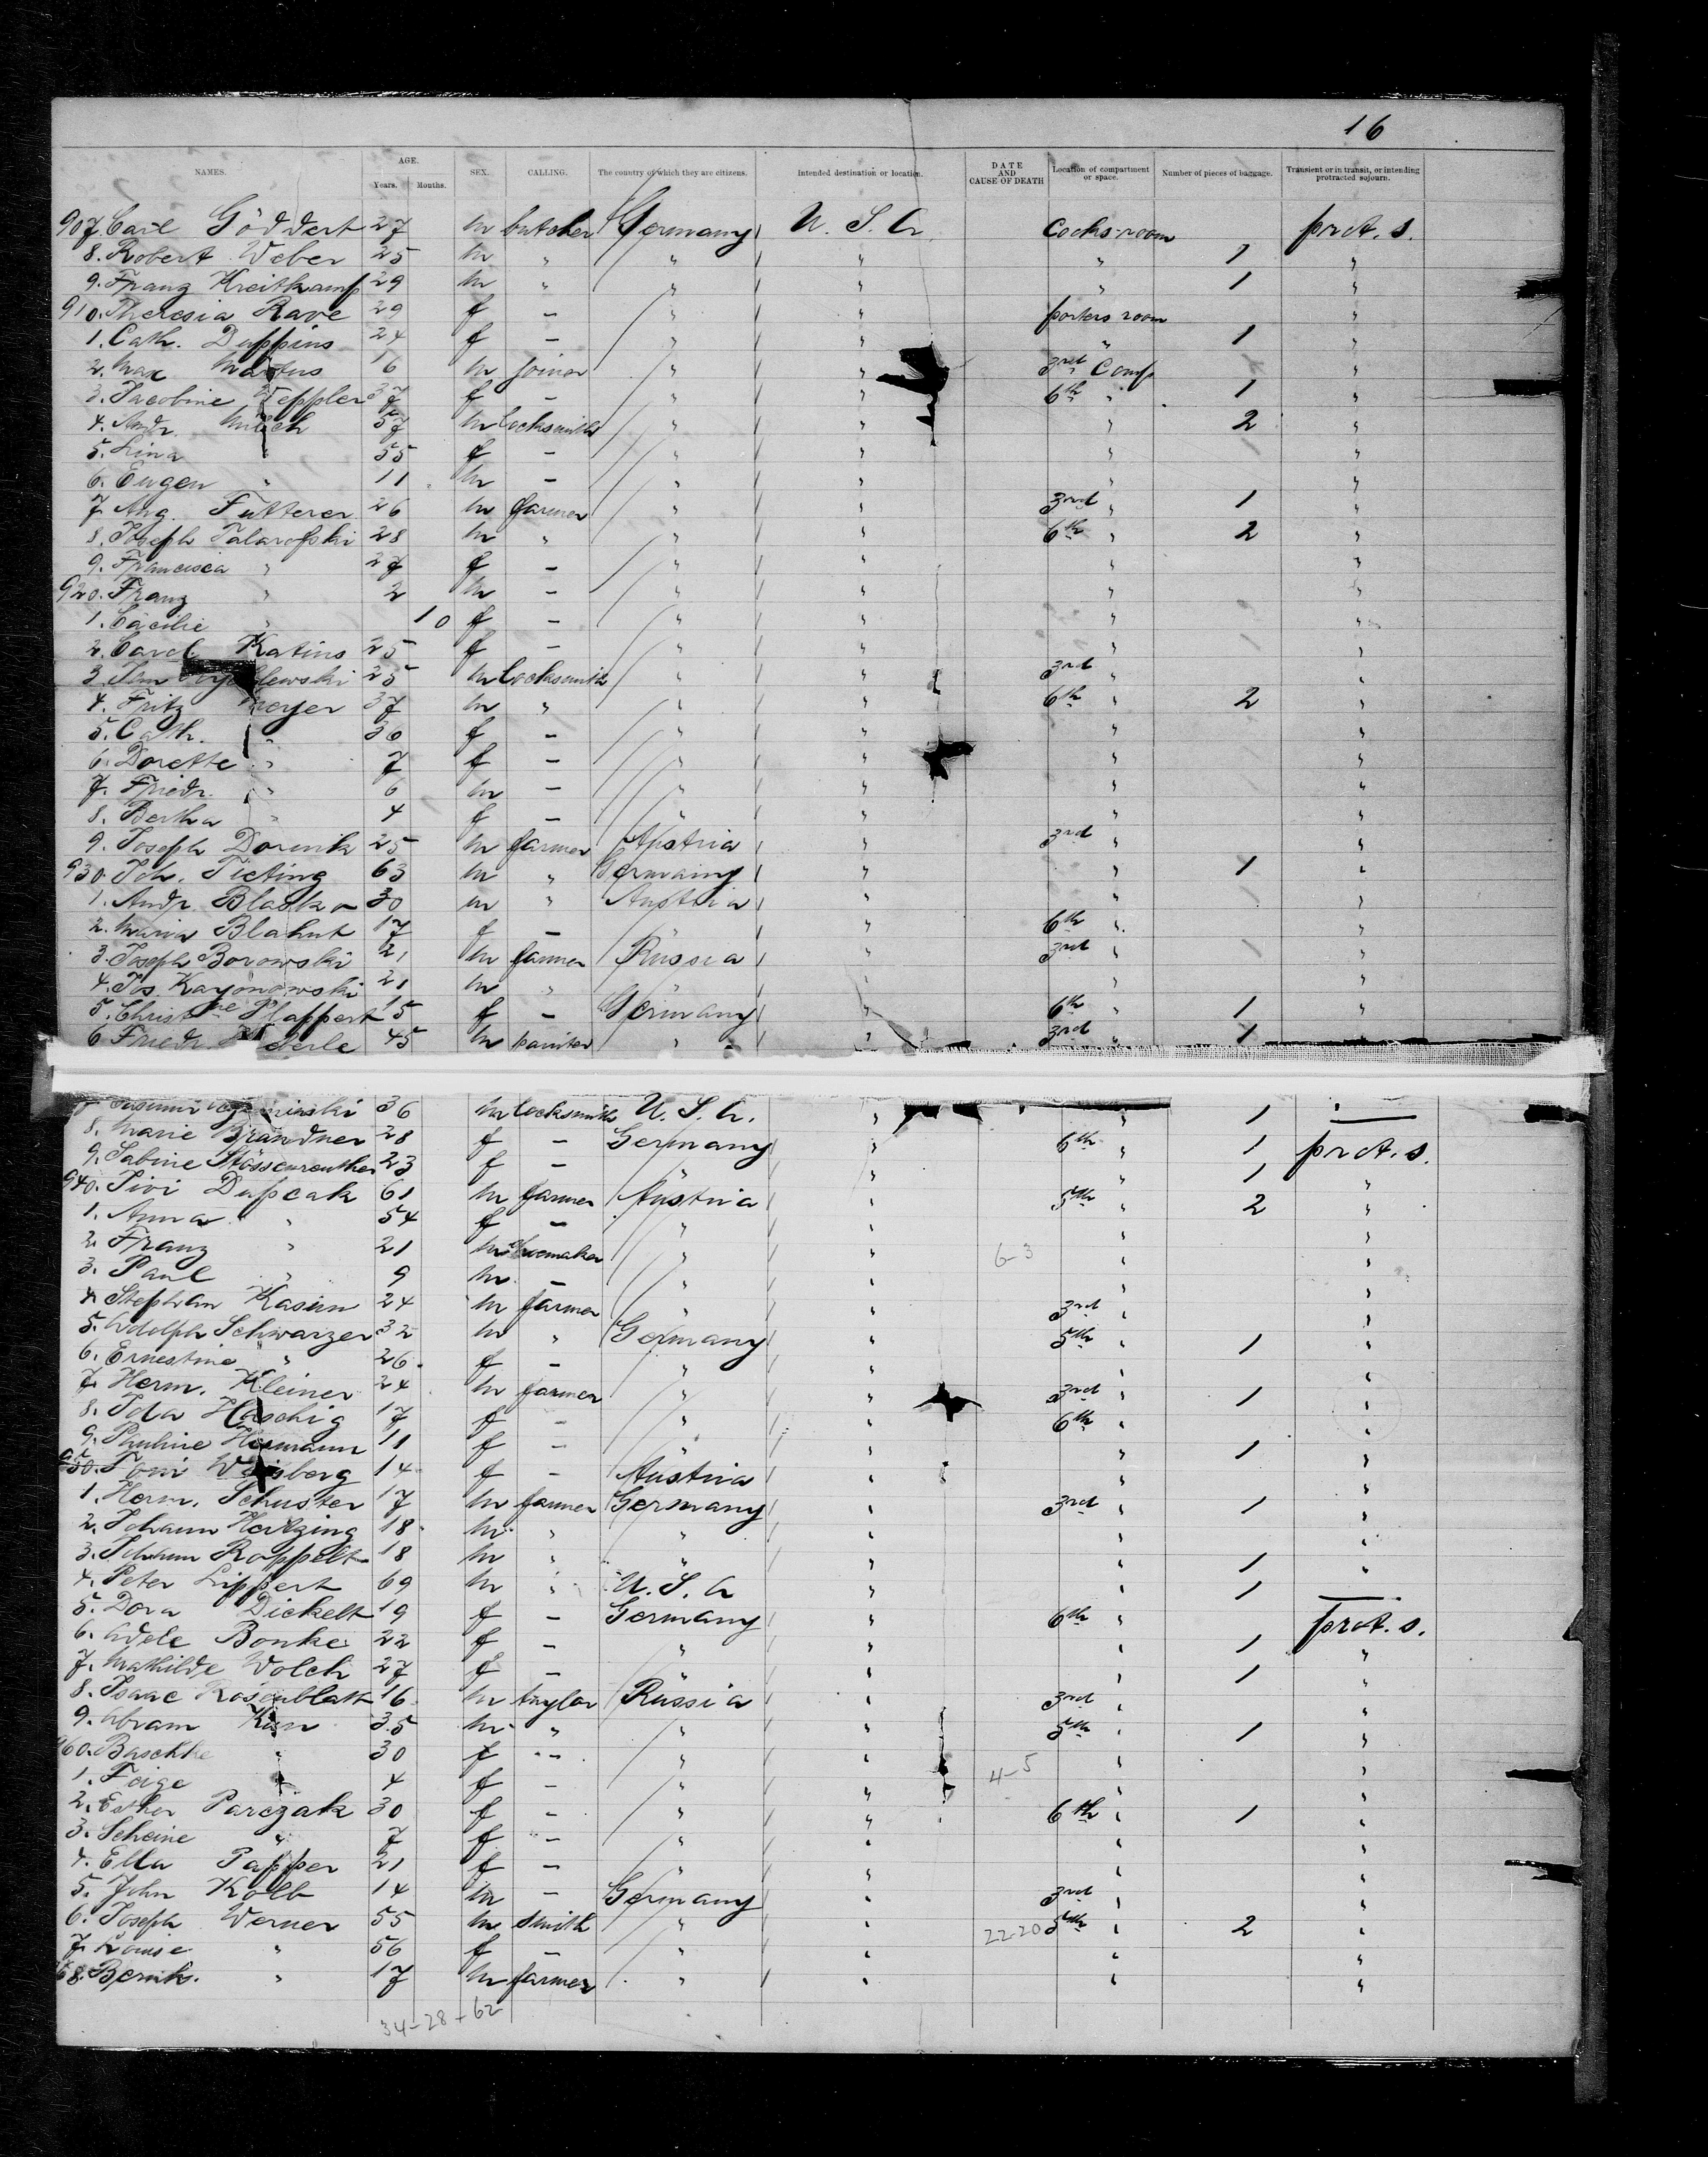 16
NAMES. AGE. Years. Months. SEX. CALLING. The country of which they are citizens. Intended destination or location. DATE AND CAUSE OF DEATH Location of compartment or space. Number of pieces of baggage. Transient or in transit, or intending protracted sojourn.
907. Carl Göddert 27 m butcher Germany U. S. A. Cooks-room prot. s.
8. Robert Weber 25 m " " " " 1 "
9. Franz Kreitkamp 29 m " " " " 1 "
910. Theresia Rave 29 f – " " porters room "
1. Cath. Duppins 24 f – " " " 1 "
2. Max Martus 16 m joiner " " 3rd Comp "
3. Jacobine Weppler 37 f – " " 6th " 1 "
4. Andr. Milch 57 m locksmith " " " 2 "
5. Lina " 55 f – " " " "
6. Eugen " 11 m – " " " "
7. Aug. Futterer 26 m farmer " " 3rd " 1 "
8. Joseph Talarofski 28 m " " " 6th " 2 "
9. Francisca " 27 f – " " " "
920. Franz " 2 m – " " " "
1. Cäcilie " 10 f – " " " "
2. Carol. Katins 25 f – " " " "
3. Jan 25 m locksmith " " 3rd " "
4. Fritz Meyer 37 m " " " 6th " 2 "
5. Cath. " 30 f – " " " "
6. Dorette " 7 f – " " " "
7. Friedr. " 6 m – " " " "
8. Bertha " 4 f – " " " "
9. Joseph Dornik 25 m farmer Austria " 3rd " "
930. Joh. Tieting 63 m " Germany " " 1 "
1. Andr. Blasko 30 m " Austria " " "
2. Maria Blahut 17 f – " " 6th " "
3. Joseph Borowski 21 m farmer Russia " 3rd " "
4. Jos. Kayonowski 21 m " " " " "
5. Christine Plappert 15 f – Germany " 6th " 1 "
6. Friedr. 45 m painter " " 3rd " 1 "
36 m locksmith U. S. A. " " 1 —
8. Marie Brandner 28 f – Germany " 6th " 1 prot. s.
9. Sabine Stössenreuther 23 f – " " " 1 "
940. Jivi Dupcak 61 m farmer Austria " 5th " 2 "
1. Anna " 54 f – " " " "
2. Franz " 21 m shoemaker " " 6-3 " "
3. Paul " 9 m – " " " "
4. Stephan Kasim 24 m farmer " " 3rd " "
5. Adolph Schwarzer 32 m " Germany " 5th " 1 "
6. Ernestine " 26 f – " " " "
7. Herm. Kleiner 24 m farmer " " 3rd " 1 "
8. Ida Haschig 17 f – " " 6th " "
9. Pauline Hermann 11 f – " " " 1 "
950. Toni Weisberg 14 f – Austria " " "
1. Herm. Schuster 17 m farmer Germany " 3rd " 1 "
2. Johann Hertzing 18 m " " " " "
3. Johann Roppelt 18 m " " " " 1 "
4. Peter Lippert 69 m " U. S. A " " 1 —
5. Dora Dickelt 19 f – Germany " 6th " prot. s.
6. Adele Bonke 22 f – " " " 1 "
7. Mathilde Wolch 27 f – " " " 1 "
8. Isaac Rosenblatt 16 m taylor Russia " 3rd " "
9. Abram 35 m " " " 5th " 1 "
960. Baschke " 30 f – " " " "
1. Feige " 4 f – " " 4-5 " "
2. Esther Parczak 30 f – " " 6th " 1 "
3. Scheine " 7 f – " " " "
4. Ella Papper 21 f – " " " "
5. John Kolb 14 m – Germany " 3rd " "
6. Joseph Werner 55 m smith " " 22-20 5th " 2 "
7. Louise " 56 f – " " " "
68. Bernh. " 17 m farmer " " " "
34-28+62